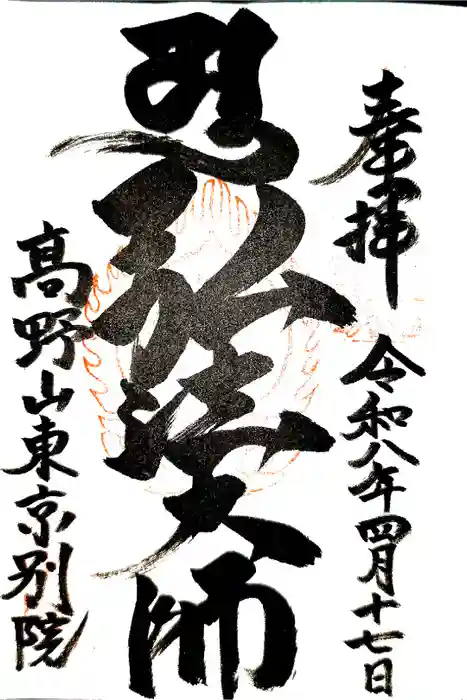 奉拝
令和八年四月十七日
弘法大師
髙野山東京別院